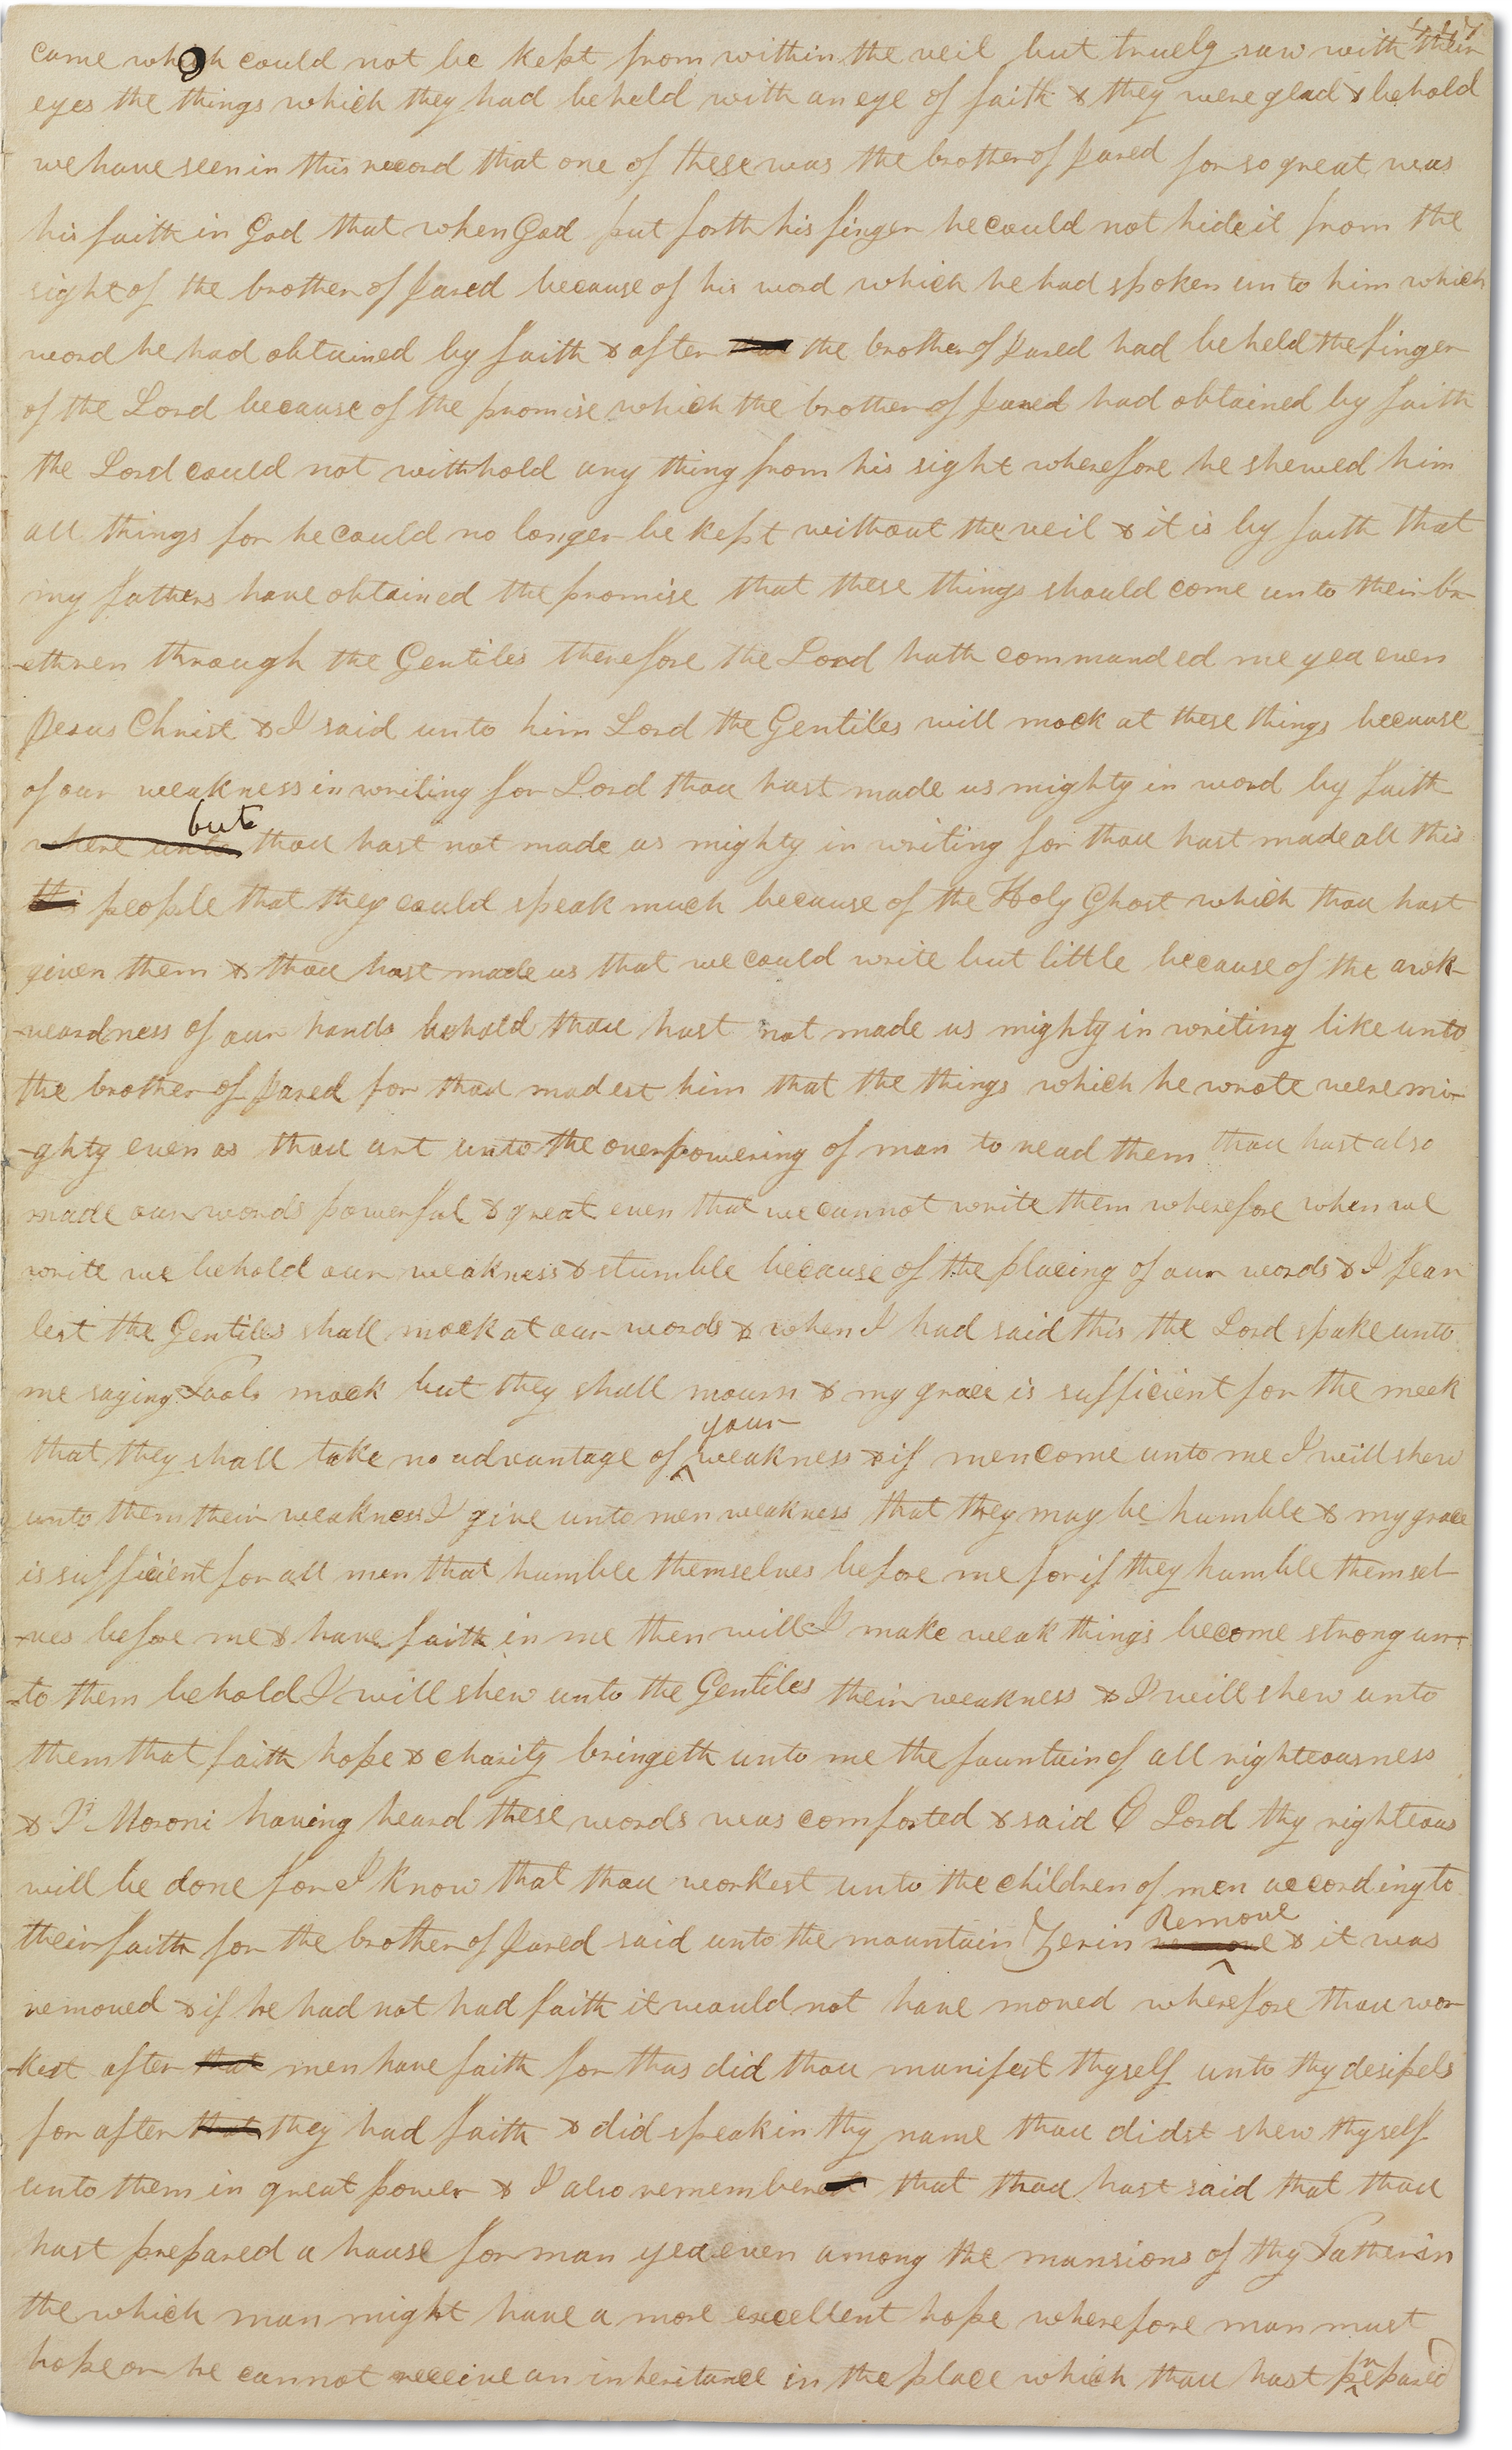 came which could not be kept from within the veil but truely saw with their
eyes the things which they had beheld with an eye of faith & they were glad & behold
we have seen in this record that one of these was the brother of Jared for so great was
his faith in God that when God put forth his finger he could not hide it from the
sight of the brother of Jared because of his word which he had spoken unto him which
word he had obtained by faith & after that the brother of Jared had beheld the finger
of the Lord because of the promise which the brother of Jared had obtained by faith
the Lord could not withhold any thing from his sight wherefore he shewed him
all things for he could no longer be kept without the veil & it is by faith that
my fathers have obtained the promise that these things should come unto their br-
-ethren through the Gentiles therefore the Lord hath commanded me yea even
Jesus Christ & I said unto him Lord the Gentiles will mock at these things because
of our weakness in writing for Lord thou hast made us mighty in word by faith
but
where unto thou hast not made us mighty in writing for thou hast made all this
this people that they could speak much because of the Holy Ghost which thou hast
given them & thou hast made us that we could write but little because of the awk-
-wardness of our hands behold thou hast not made us mighty in writing like unto
the brother of Jared for thou madest him that the things which he wrote were mi-
-ghty even as thou art unto the overpowering of man to read them thou hast also
made our words powerful & great even that we cannot write them wherefore when we
write we behold our weakness & stumble because of the placing of our words & I fear
lest the Gentiles shall mock at our words & when I had said this the Lord spake unto
me saying Fools mock but they shall mourn & my grace is sufficient for the meek
your
that they shall take no advantage of ^ weakness & if men come unto me I will shew
unto them their weakness I give unto men weakness that they may be humble & my grace
is sufficient for all men that humble themselves before me for if they humble themsel-
-ves before me & have faith in me then will I make weak things become strong un-
-to them behold I will shew unto the Gentiles their weakness & I will shew unto
them that faith hope & charity bringeth unto me the fountain of all righteousness
& I Moroni having heard these words was comforted & said O Lord thy righteous
will be done for I know that thou workest unto the children of men according to
Remove
their faith for the brother of Jared said unto the mountain Zerin remove ^ & it was
removed & if he had not had faith it would not have moved wherefore thou wor-
-kest after that men have faith for thus did thou manifest thyself unto thy desipels
for after that they had faith & did speak in thy name thou didst shew thyself
unto them in great power & I also remember that thou hast said that thou
hast prepared a house for man yea even among the mansions of thy Father in
the which man might have a more excellent hope wherefore man must
hope or he cannot receive an inheritance in the place which thou hast prepared